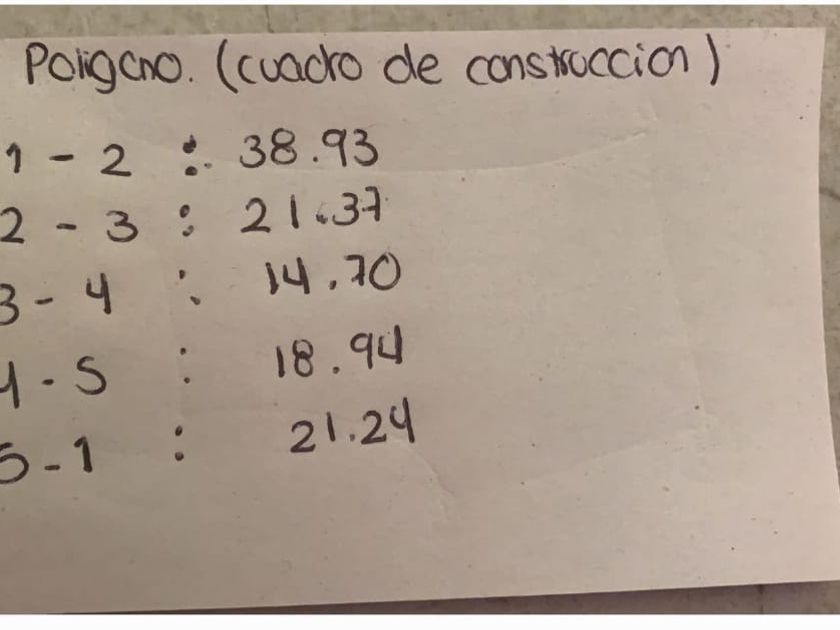 Poligono. (cuadro de construccion)
1 - 2 : 38.93
2 - 3 : 21.37
3 - 4 : 14.70
4 - 5 : 18.94
5 - 1 : 21.24